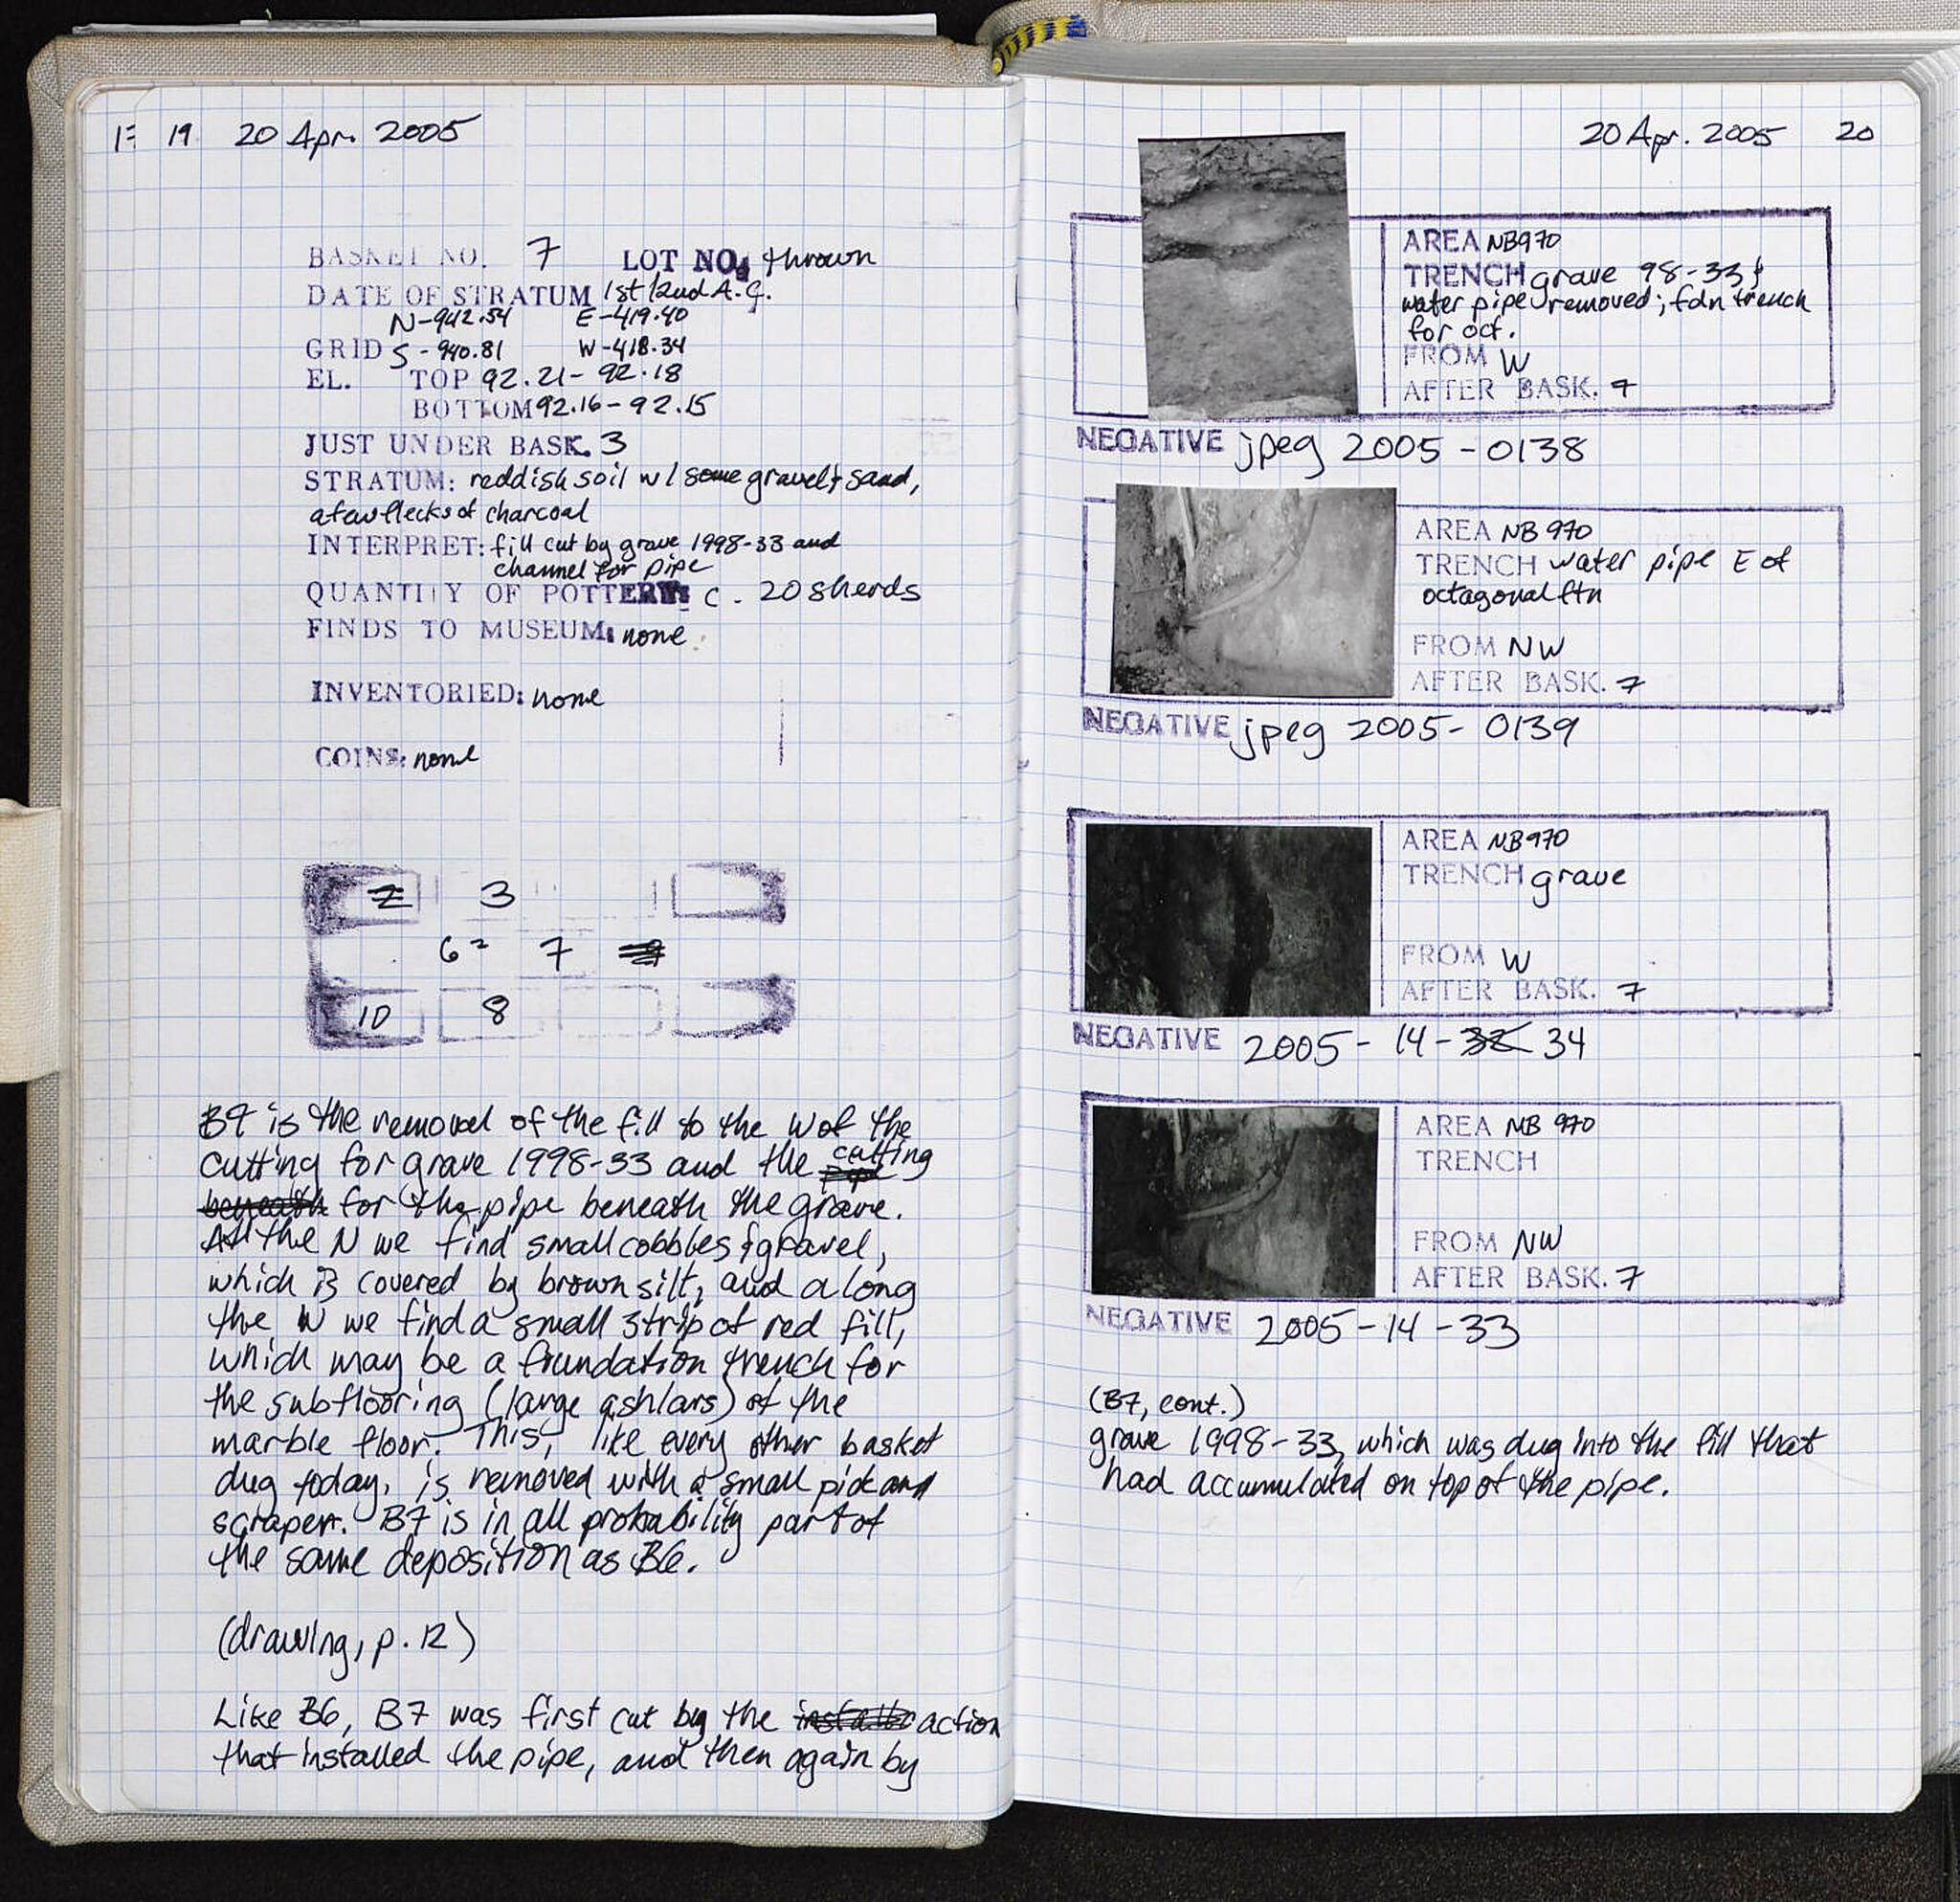 19 20 Apr. 2005
BASKET NO. 7 LOT NO. thrown
DATE OF STRATUM 1st/2nd A.C.
N-942.54 E-419.40
GRID S-940.81 W-418.34
EL. TOP 92.21-92.18
BOTTOM 92.16-92.15
JUST UNDER BASK. 3
STRATUM: reddish soil w/ some gravel & sand,
a few flecks of charcoal
INTERPRET: fill cut by grave 1998-33 and
channel for pipe
QUANTITY OF POTTERY: c. 20 sherds
FINDS TO MUSEUM: none
INVENTORIED: none
COINS: none
2 3
6= 7
10 8
B7 is the removal of the fill to the W of the
cutting for grave 1998-33 and the cutting
beneath for the pipe beneath the grave.
At the N we find small cobbles & gravel,
which is covered by brown silt, and along
the W we find a small strip of red fill,
which may be a foundation trench for
the subflooring (large ashlars) of the
marble floor. This, like every other basket
dug today, is removed with a small pick and
scraper. B7 is in all probability part of
the same deposition as B6.
(drawing, p. 12)
Like B6, B7 was first cut by the action
that installed the pipe, and then again by
20 Apr. 2005 20
AREA NB970
TRENCH grave 98-33 &
water pipe removed; fdn trench
for oct.
FROM W
AFTER BASK. 7
NEGATIVE jpeg 2005-0138
AREA NB 970
TRENCH water pipe E of
octagonal ftn
FROM NW
AFTER BASK. 7
NEGATIVE jpeg 2005-0139
AREA NB970
TRENCH grave
FROM W
AFTER BASK. 7
NEGATIVE 2005-14-32 34
AREA NB 970
TRENCH
FROM NW
AFTER BASK. 7
NEGATIVE 2005-14-33
(B7, cont.)
grave 1998-33, which was dug into the fill that
had accumulated on top of the pipe.